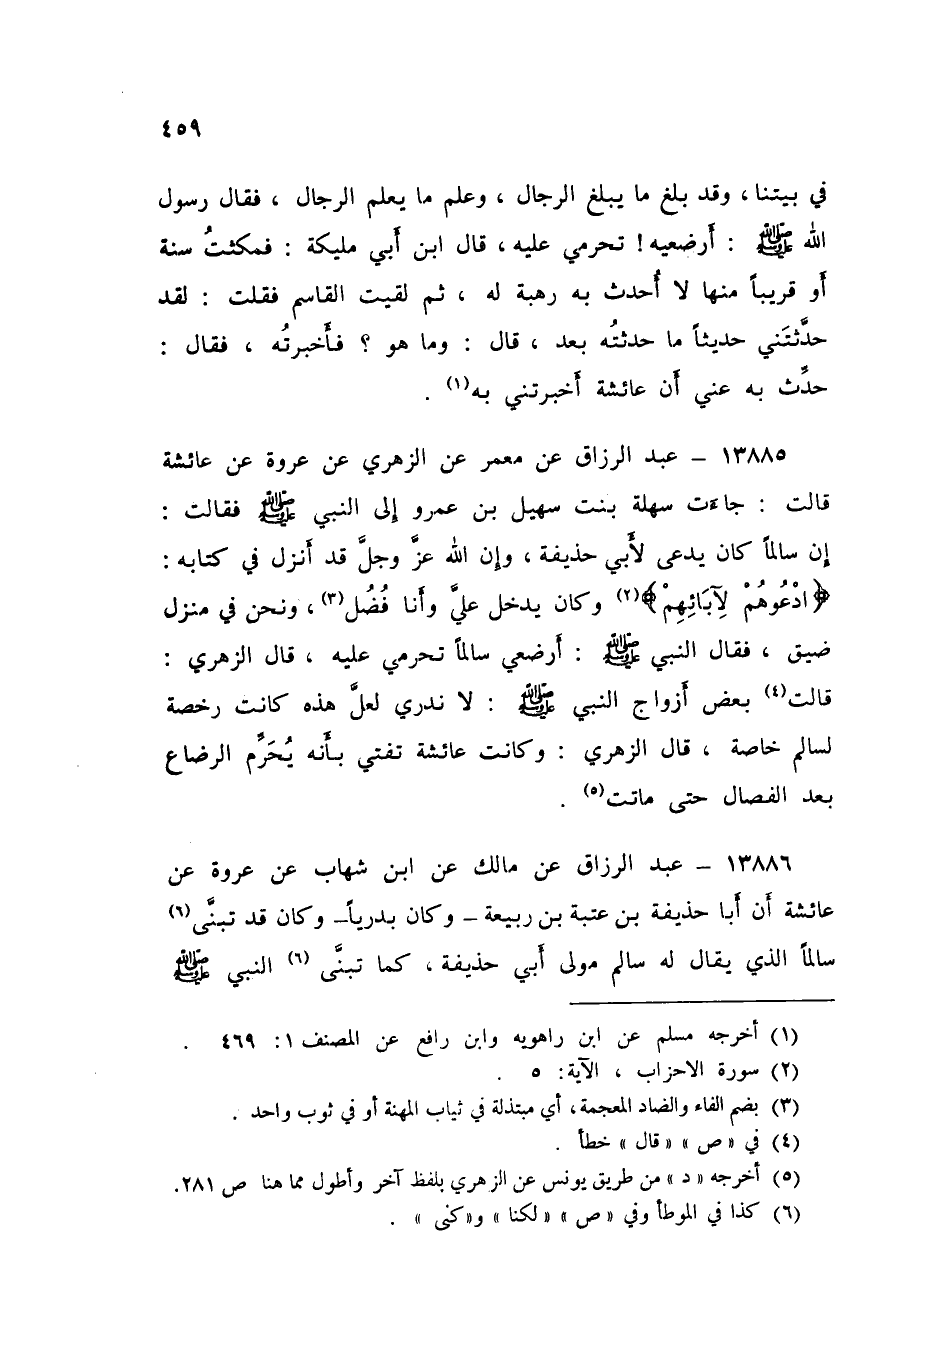 ٤٥٩
في بيتنا ، وقد بلغ ما يبلغ الرجال ، وعلم ما يعلم الرجال ، فقال رسول
الله ﷺ : أَرضعيه ! تحرمي عليه ، قال ابن أَبي مليكة : فمكثتُ سنة
أَو قريباً منها لا أُحدث به رهبة له ، ثم لقيت القاسم فقلت : لقد
حدَّثتَني حديثاً ما حدثتُه بعد ، قال : وما هو ؟ فأَخبرتُه ، فقال :
حدِّث به عني أَن عائشة أَخبرتني به(١) .
١٣٨٨٥ – عبد الرزاق عن معمر عن الزهري عن عروة عن عائشة
قالت : جاءَت سهلة بنت سهيل بن عمرو إِلى النبي ﷺ فقالت :
إِن سالماً كان يدعى لأَبي حذيفة ، وإِن الله عزَّ وجلَّ قد أَنزل في كتابه :
﴿ادْعُوهُمْ لِآبَائِهِمْ﴾(٢) وكان يدخل عليَّ وأَنا فُضُل(٣) ، ونحن في منزل
ضيق ، فقال النبي ﷺ : أَرضعي سالماً تحرمي عليه ، قال الزهري :
قالت(٤) بعض أَزواج النبي ﷺ : لا ندري لعلَّ هذه كانت رخصة
لسالم خاصة ، قال الزهري : وكانت عائشة تفتي بأَنه يُحَرِّم الرضاع
بعد الفصال حتى ماتت(٥) .
١٣٨٨٦ – عبد الرزاق عن مالك عن ابن شهاب عن عروة عن
عائشة أَن أَبا حذيفة بن عتبة بن ربيعة – وكان بدرياً – وكان قد تبنَّى(٦)
سالماً الذي يقال له سالم مولى أَبي حذيفة ، كما تبنَّى(٦) النبي ﷺ
(١) أخرجه مسلم عن ابن راهويه وابن رافع عن المصنف ١: ٤٦٩ .
(٢) سورة الاحزاب ، الآية: ٥ .
(٣) بضم الفاء والضاد المعجمة، أي مبتذلة في ثياب المهنة أو في ثوب واحد .
(٤) في «ص» «قال» خطأ .
(٥) أخرجه «د» من طريق يونس عن الزهري بلفظ آخر وأطول مما هنا ص ٢٨١.
(٦) كذا في الموطأ وفي «ص» «لكنا» و«كنى» .